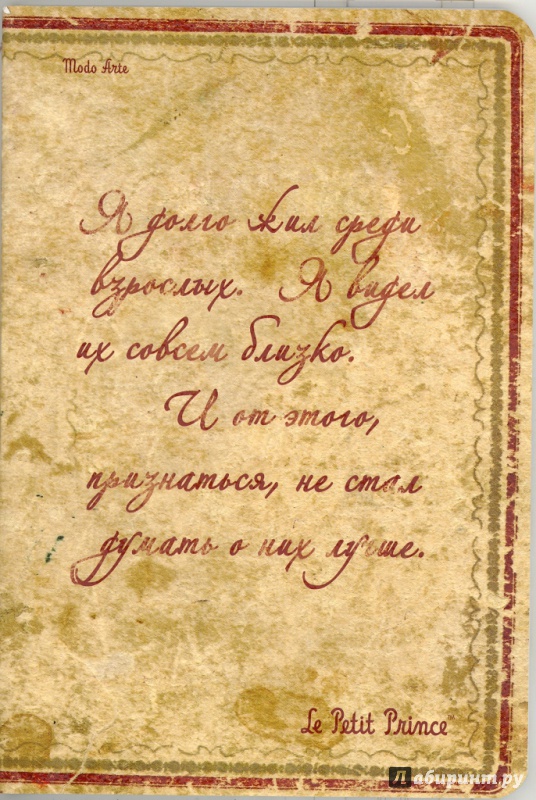 Modo Arte
Я долго жил среди
взрослых. Я видел
их совсем близко.
И от этого,
признаться, не стал
думать о них лучше.
Le Petit Prince
Лабиринт.ру